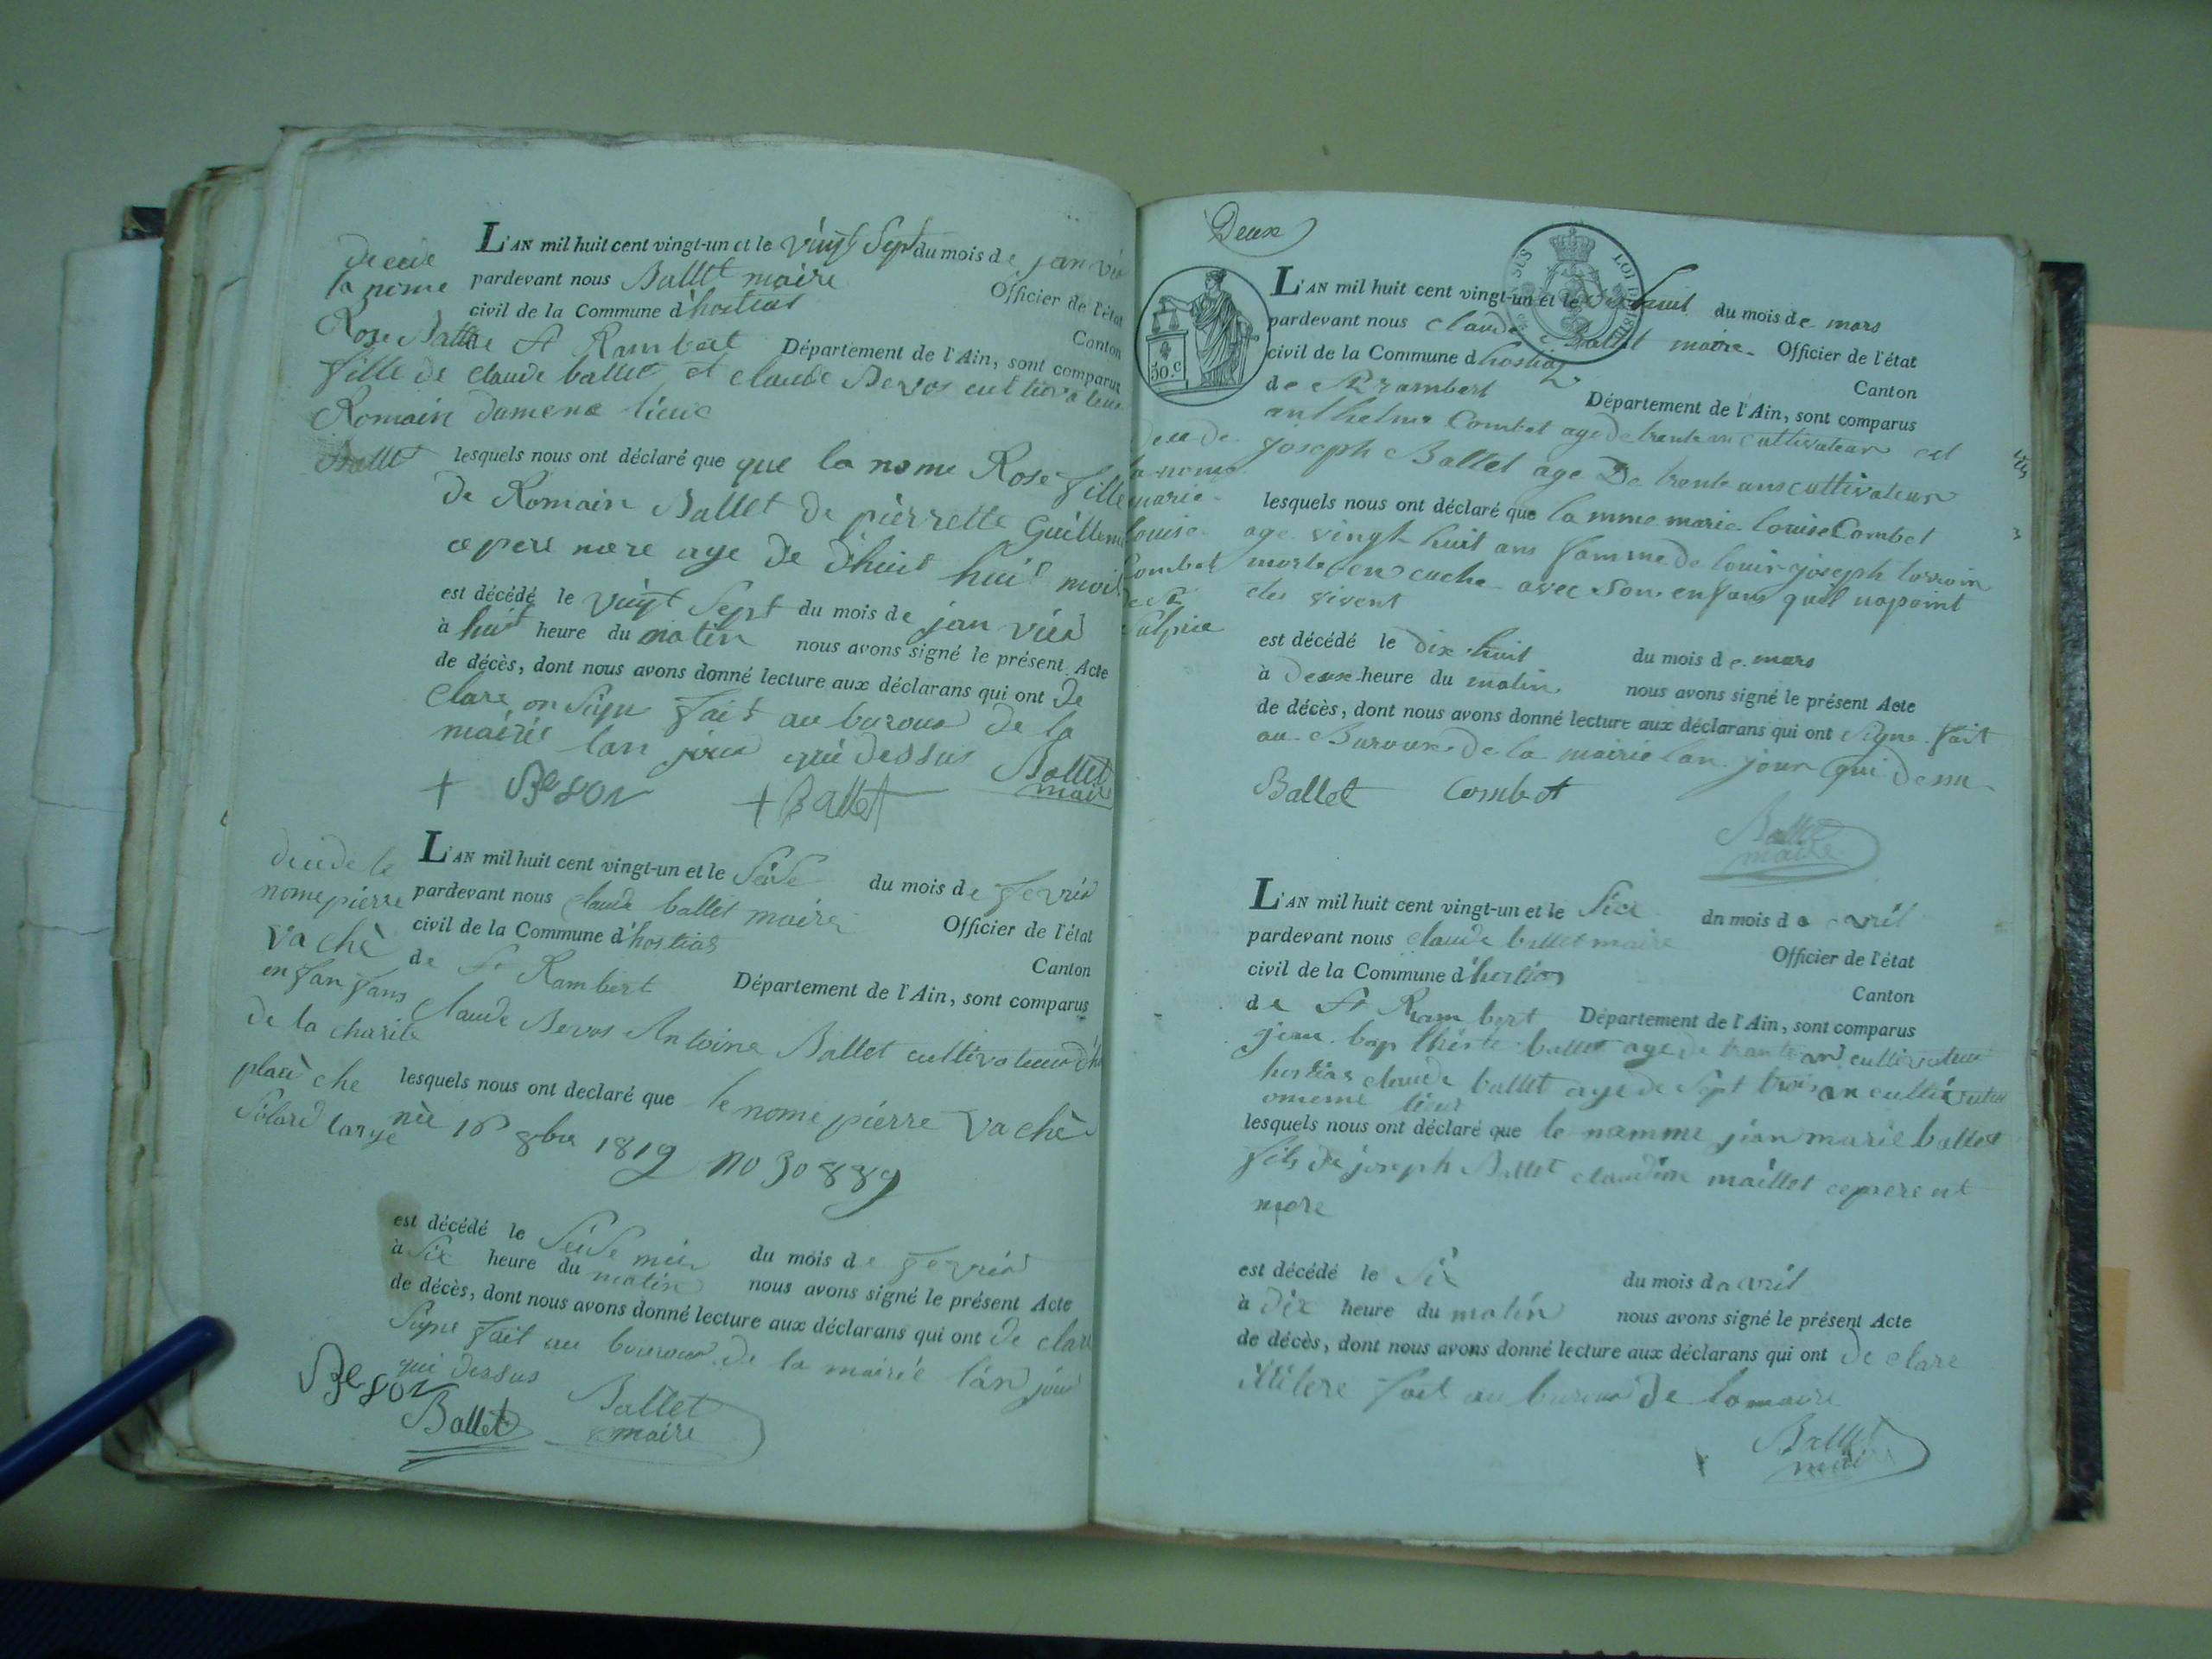 décede
la nome
Rose Ballet
fille de
Romain
Ballet
L'AN mil huit cent vingt-un et le vingt Sept du mois de janvié
pardevant nous Ballet maire Officier de l'état
civil de la Commune d'hostias Canton
de St Rambert Département de l'Ain, sont comparus
claude ballet et claude Besson cultivateur
dumeme lieux
lesquels nous ont déclaré que que la nome Rose fille
de Romain Ballet de pierrette Guillem
ce pere mere age de dhuit huit mois
est décédé le vingt Sept du mois de jan vié
à huit heure du matin nous avons signé le présent Acte
de décès, dont nous avons donné lecture aux déclarans qui ont de
clare on Signe fait au buroux de la
mairie lan jour qui dessus
+ Beson + Ballet Ballet
maire
decede le
nome pierre
vaché
enfan fans
de la charite
L'AN mil huit cent vingt-un et le Seise du mois de fevrié
pardevant nous claude ballet maire Officier de l'état
civil de la Commune d'hostias Canton
de St Rambert Département de l'Ain, sont comparus
claude Besson Antoine Ballet cultivateur
plaù che
lesquels nous ont declaré que le nome pierre vaché
née 16 8bre 1819 no 30889
est décédé le Seise du mois de fevrié
à Six heure du matin nous avons signé le présent Acte
de décès, dont nous avons donné lecture aux déclarans qui ont de clare
Signe fait au bouroux de la mairié l'an jour
qui dessus
Beson
Ballet Ballet
maire
Deux
50.c
LOI
L'AN mil huit cent vingt-un et le dix huit du mois de mars
pardevant nous claude Ballet maire Officier de l'état
civil de la Commune d hostiaz Canton
de St rambert Département de l'Ain, sont comparus
anthelme Combet age de trente un cultivateur et
joseph Ballet age De trente ans cultivateur
decede
la nome
marie
louise
Combet
de St
Sulpice
lesquels nous ont déclaré que la mme marie louise Combet
age vingt huit ans famme de louis joseph lorrain
morte en cuche avec Son enfans quel napoint
etes vivent
est décédé le dix huit du mois de mars
à deux heure du matin nous avons signé le présent Acte
de décès, dont nous avons donné lecture aux déclarans qui ont Signe fait
au Buroux de la mairie lan jour qui desu
Ballet Combet
Ballet
maire
L'AN mil huit cent vingt-un et le Six du mois de avril
pardevant nous claude ballet maire Officier de l'état
civil de la Commune d'hostias Canton
de St Rambert Département de l'Ain, sont comparus
jean bapthiste ballet age de trante an cultivateur
hostias claude ballet age de Sept trois an cultivateur
omeme lieux
lesquels nous ont déclaré que le namme jian marie ballet
fils de joseph Ballet claudine maillet ce pere et
mere
est décédé le Six du mois de avril
à dix heure du matin nous avons signé le présent Acte
de décès, dont nous avons donné lecture aux déclarans qui ont de clare
illitere fait au bureau de lamaire
Ballet
maire